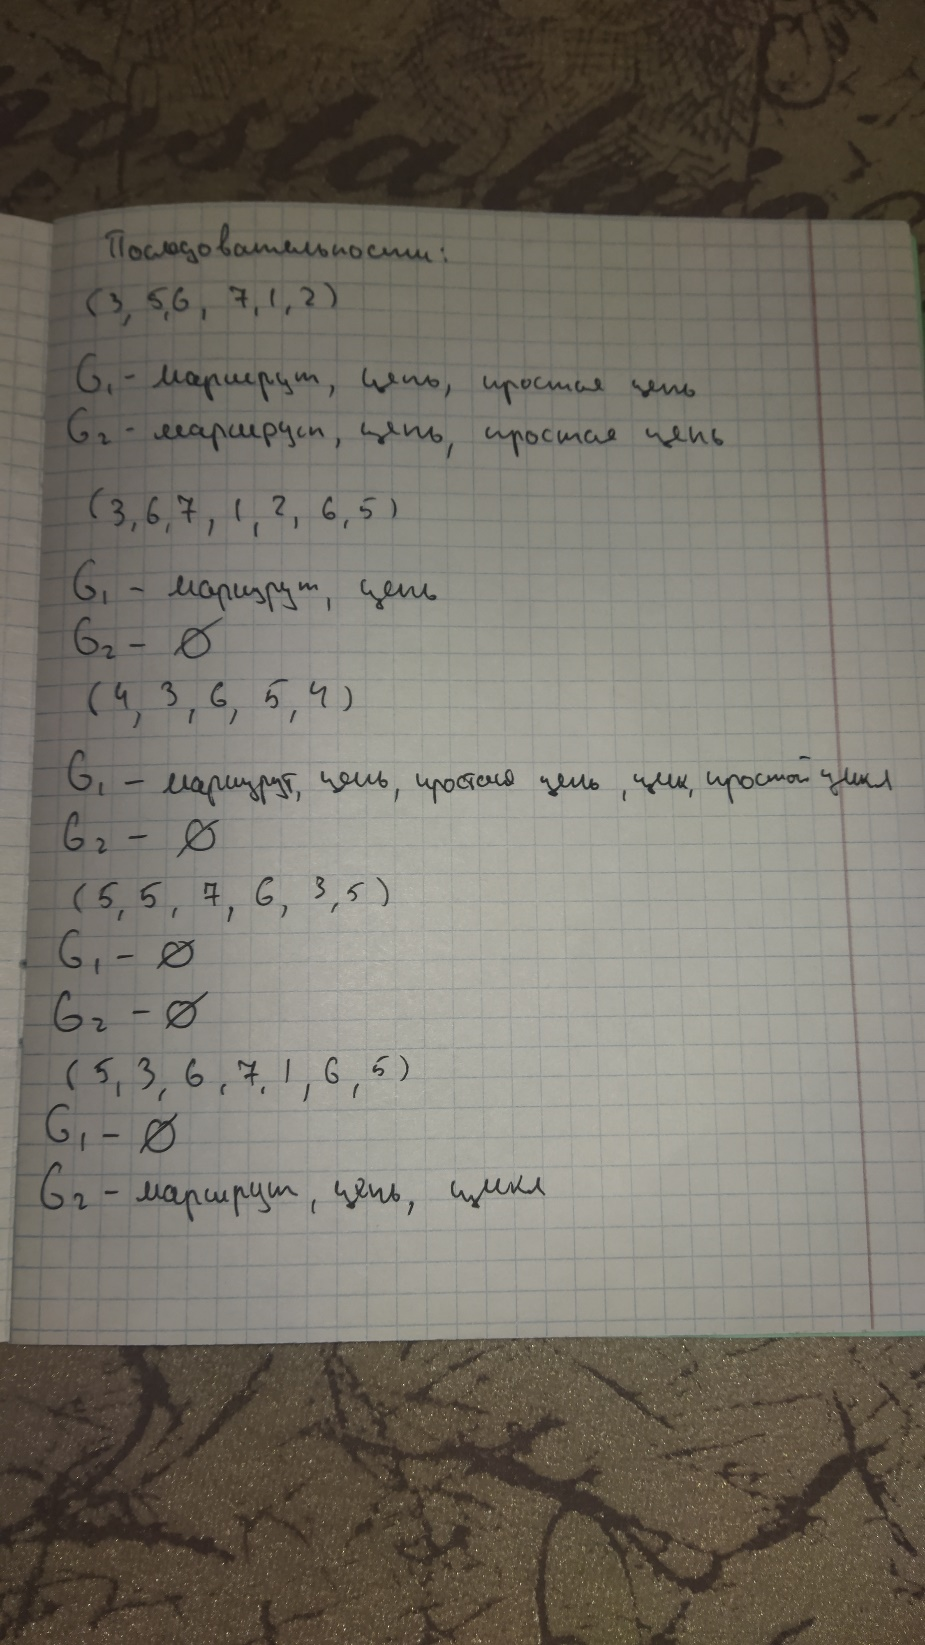 Последовательности:
(3, 5,6, 7,1,2)
G₁ - маршрут, цепь, простая цепь
G₂ - маршрут, цепь, простая цепь
(3,6,7,1,2,6,5)
G₁ - маршрут, цепь
G₂ - ∅
(4, 3, 6, 5,4)
G₁ - маршрут, цепь, простая цепь, цик, простой цикл
G₂ - ∅
(5,5, 7, 6, 3,5)
G₁ - ∅
G₂ - ∅
(5, 3, 6, 7, 1, 6, 5)
G₁ - ∅
G₂ - маршрут, цепь, цикл